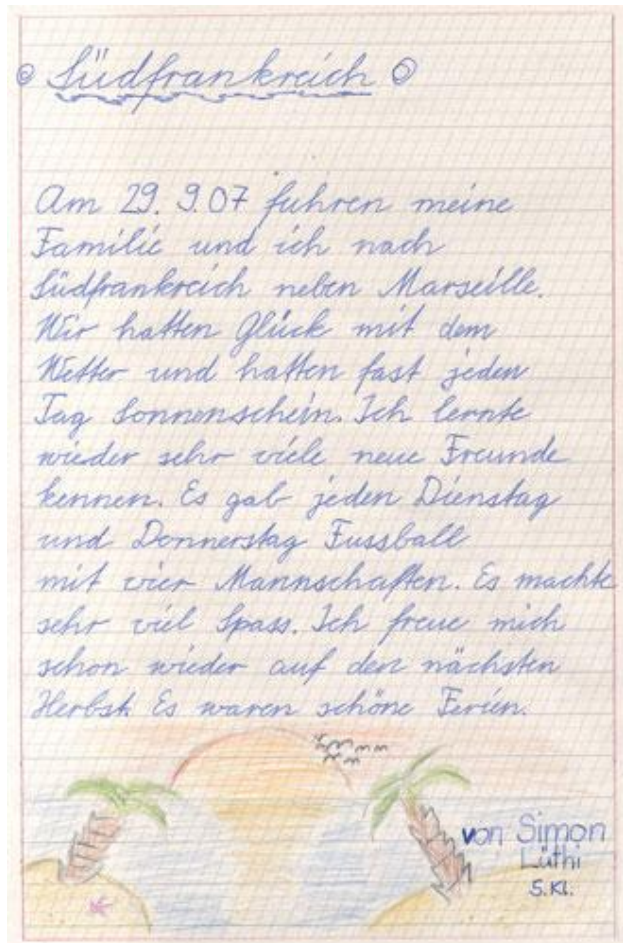 Südfrankreich
Am 29. 9.07 fuhren meine
Familie und ich nach
Südfrankreich neben Marseille.
Wir hatten Glück mit dem
Wetter und hatten fast jeden
Tag Sonnenschein. Ich lernte
wieder sehr viele neue Freunde
kennen. Es gab jeden Dienstag
und Donnerstag Fussball
mit vier Mannschaften. Es machte
sehr viel Spass. Ich freue mich
schon wieder auf den nächsten
Herbst. Es waren schöne Ferien.
von Simon
Lüthi
5. Kl.